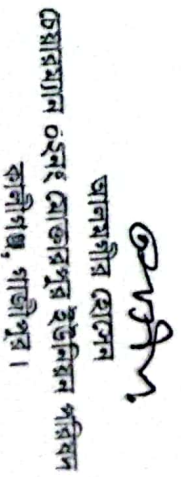 আলমগীর হোসেন
চেয়ারম্যান ৩নং মোক্তারপুর ইউনিয়ন পরিষদ
কালীগঞ্জ, গাজীপুর।